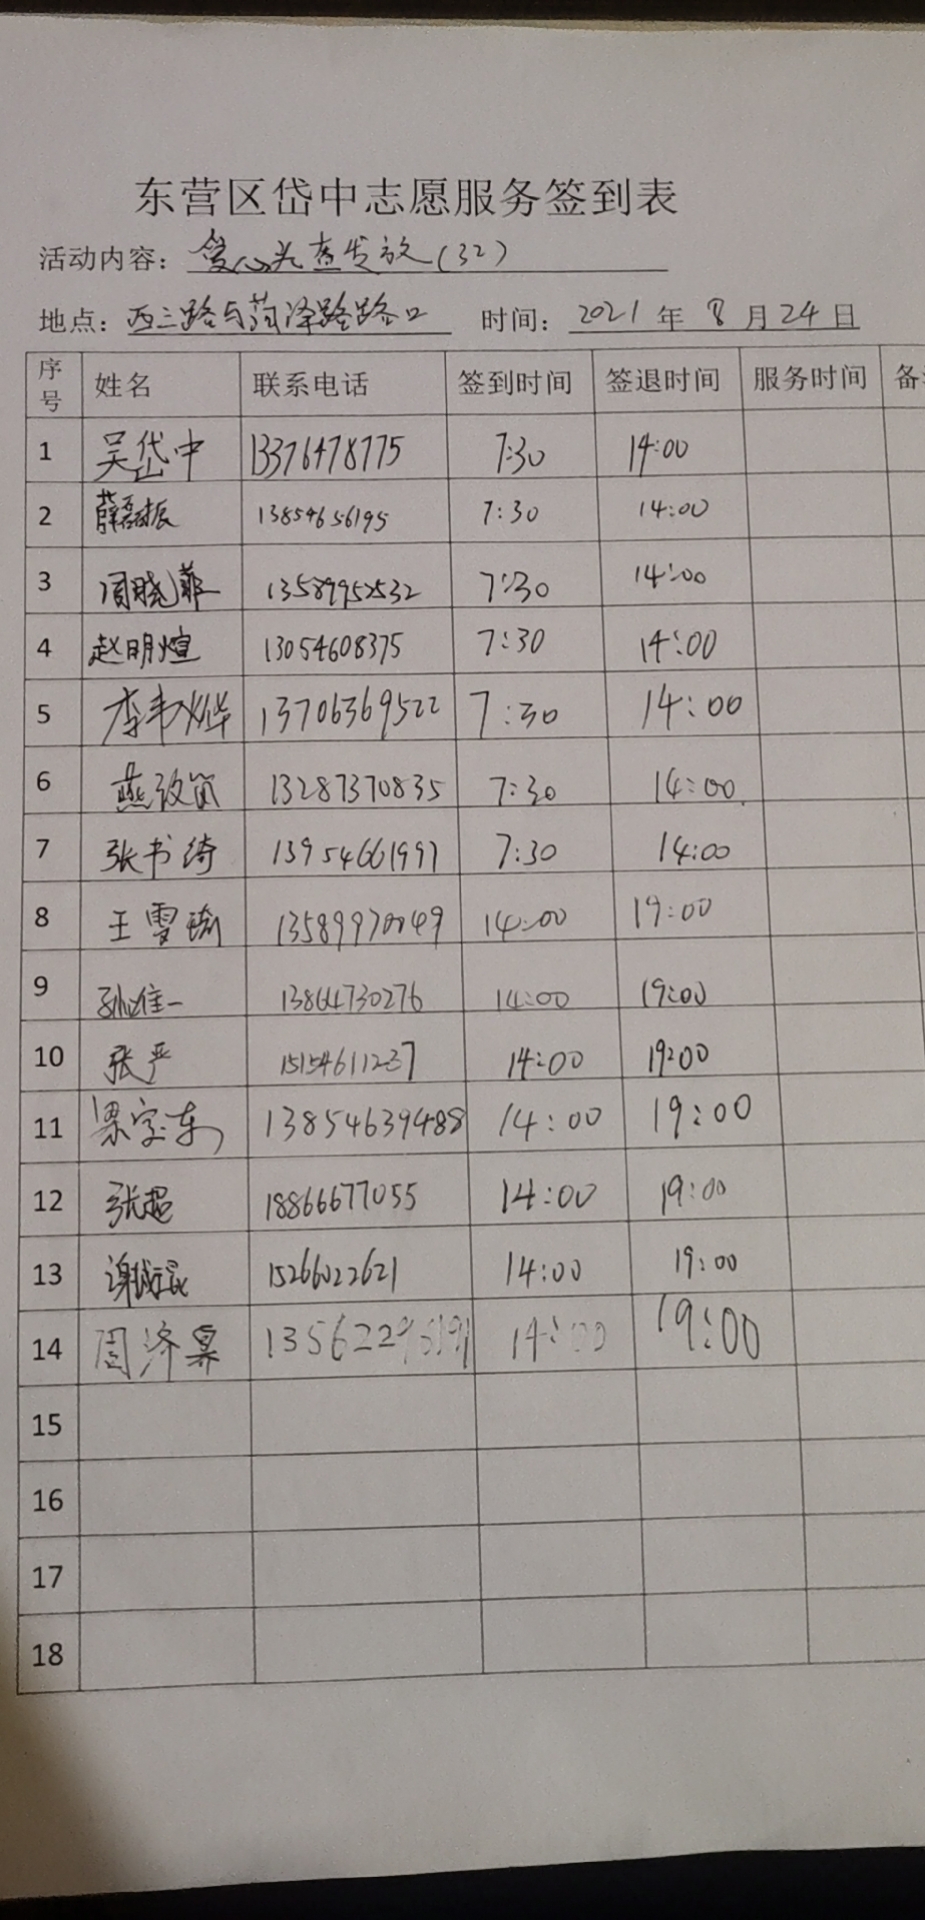 东营区岱中志愿服务签到表
活动内容：爱心茶发放(32)
地点：西三路与菏泽路路口 时间：2021年8月24日
序号 姓名 联系电话 签到时间 签退时间 服务时间 备
1 吴岱中 13376478775 7:30 14:00
2 13854656195 7:30 14:00
3 周晓菲 13589952532 7:30 14:00
4 赵明煊 13054608375 7:30 14:00
5 李韦烨 13706369522 7:30 14:00
6 13287370835 7:30 14:00
7 张书绮 13954661991 7:30 14:00
8 王雪瑜 14:00 19:00
9 孙唯一 13864730276 14:00 19:00
10 张严 15154611237 14:00 19:00
11 梁宝东 13854639488 14:00 19:00
12 张超 18866677055 14:00 19:00
13 15266022621 14:00 19:00
14 周泽昊 14:00 19:00
15
16
17
18